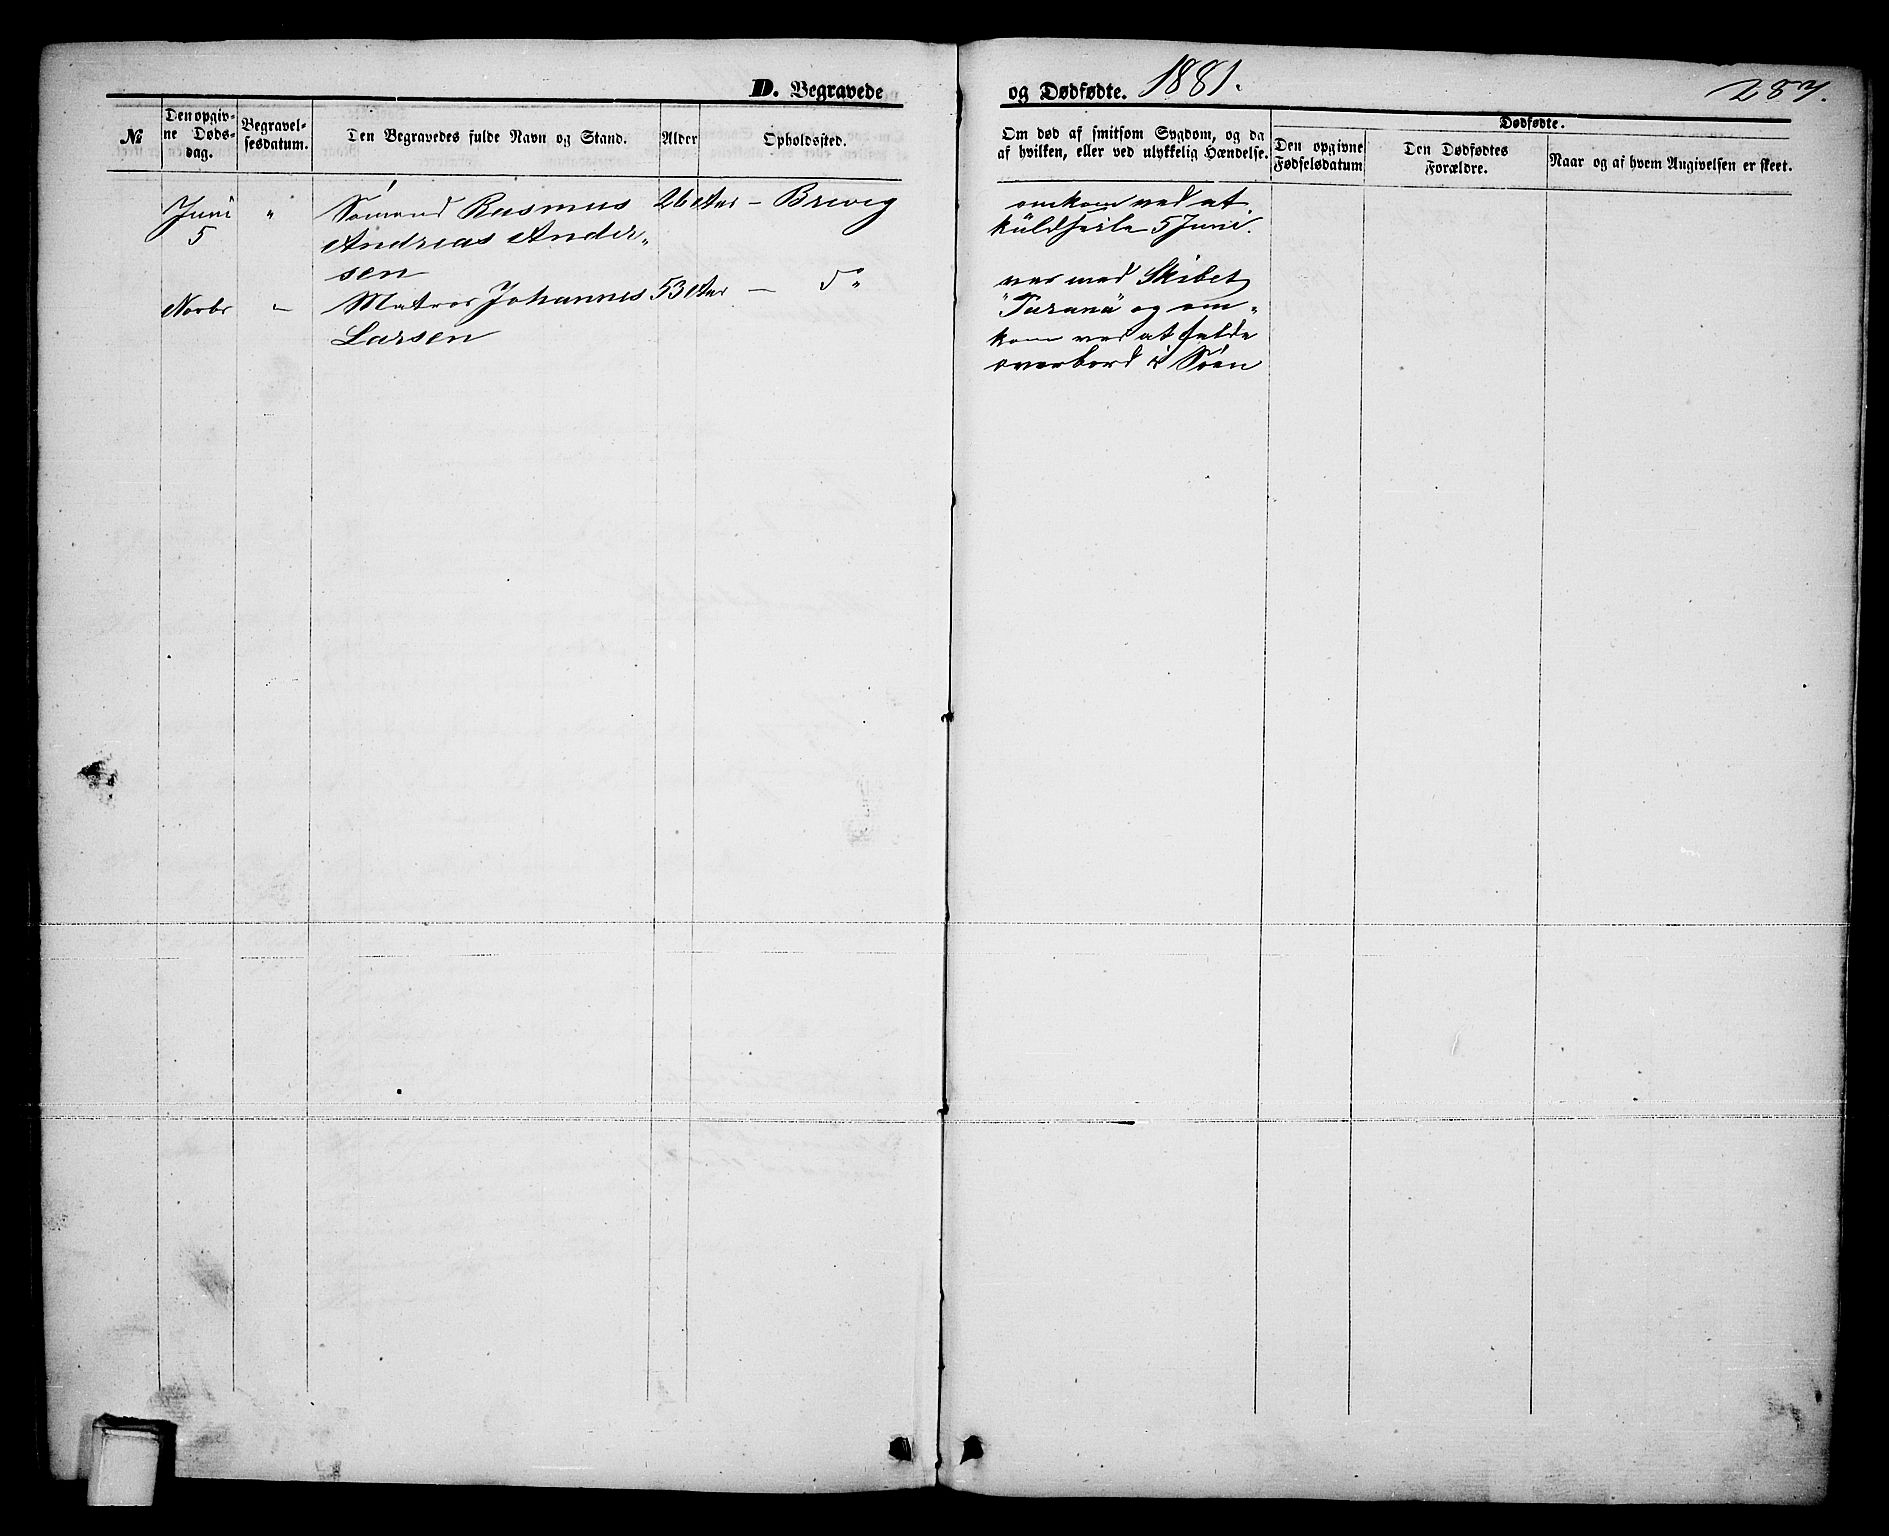 D. Begravede og Dødfødte. 1881.
287.
№
Den opgiv-
ne Døds-
dag.
Begravel-
sesdatum.
Den Begravedes fulde Navn og Stand.
Alder
Opholdssted.
Om død af smitsom Sygdom, og da
af hvilken, eller ved ulykkelig Hændelse.
Dødfødte.
Den opgivne
Fødselsdatum
Den Dødfødtes
Forældre.
Naar og af hvem Angivelsen er skeet.
Juni
5
"
Sømand Rasmus
Andreas Ander„
sen
26 Aar
— Brevig
omkom ved at
kuldseile 5 Juni.
Novbr
"
Matros Johannes
Larsen
53 Aar
— D°
var med Skibet
og om„
kom ved at falde
overbord i Søen